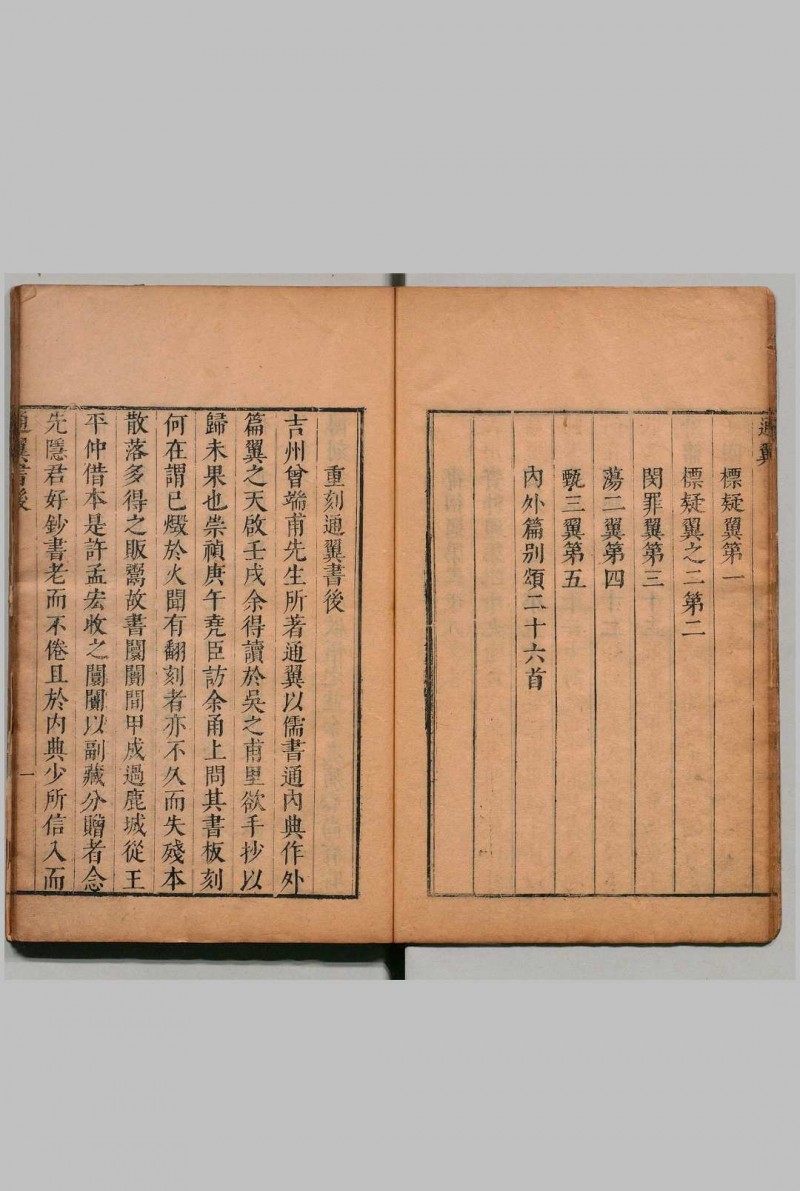 通翼
標疑翼第一
標疑翼之二第二
閔罪翼第三
蕩二翼第四
甄三翼第五
內外篇別頌二十六首
重刻通翼書後
吉州曾端甫先生所著通翼以儒書通內典作外
篇翼之天啟壬戌余得讀於吳之甫里欲手抄以
歸未果也崇禎庚午堯臣訪余甬上問其書板刻
何在謂已燬於火聞有翻刻者亦不久而失殘本
散落多得之販鬻故書闤闠間甲戌過鹿城從王
平仲借本是許孟宏收之闤闠以副藏分贈者念
先隱君好鈔書老而不倦且於內典少所信入而
通翼書後
一